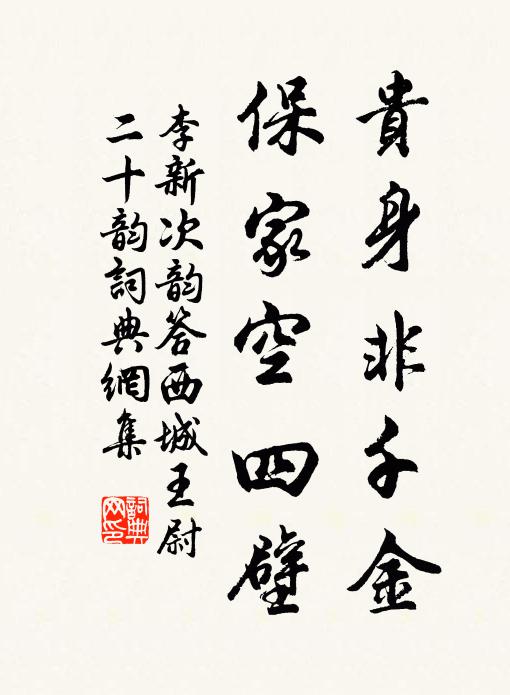 貴身非千金
保家空四壁
李新次韵答西城王尉
二十韵詞典網集
詞典網印